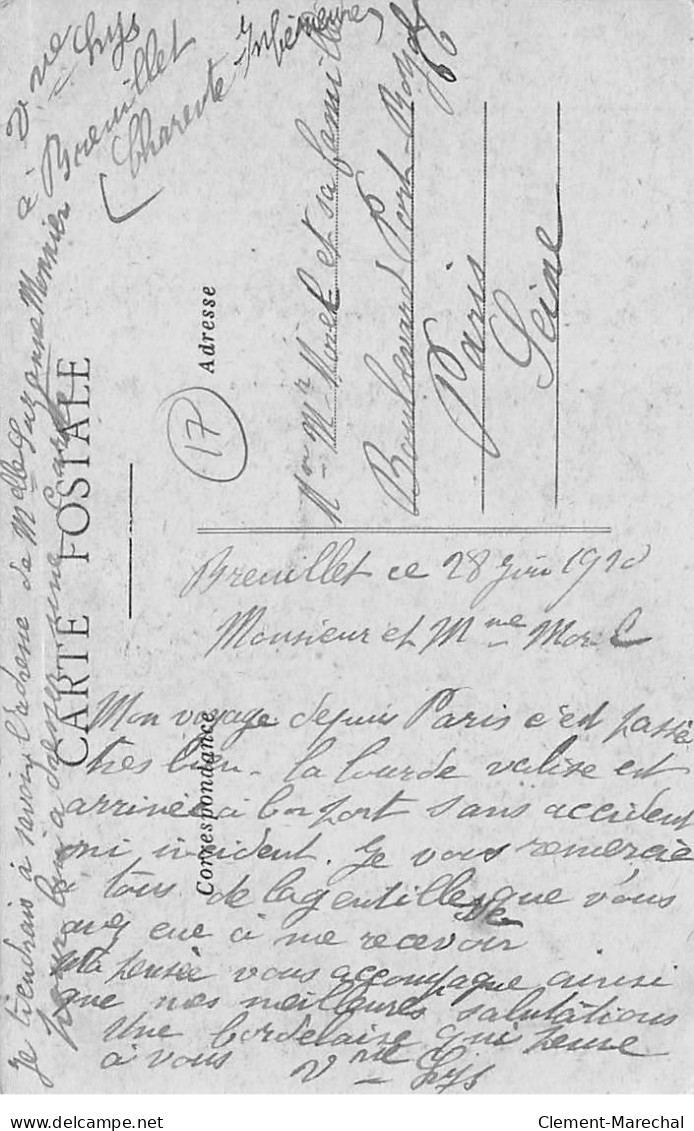 Vve Lys
à Breuillet
(Charente Inférieure)
CARTE POSTALE
Correspondance
Adresse
17
Mr Mme Morel et sa famille
Boulevard Port-Royal
Paris
Seine
Breuillet ce 28 Juin 1910
Monsieur et Mme Morel
Mon voyage depuis Paris c'est passé
très bien - la lourde valise est
arrivée à bon port sans accident
ni incident. Je vous remercie
à tous de la gentillesse que vous
avez eue à me recevoir
Ma pensée vous accompagne ainsi
que mes meilleures salutations
Une bordelaise qui pense
à vous Vve Lys
Je tiendrais à savoir l'adresse de Mlle Suzanne Monnier
pour lui adresser une carte
Clement-Marechal